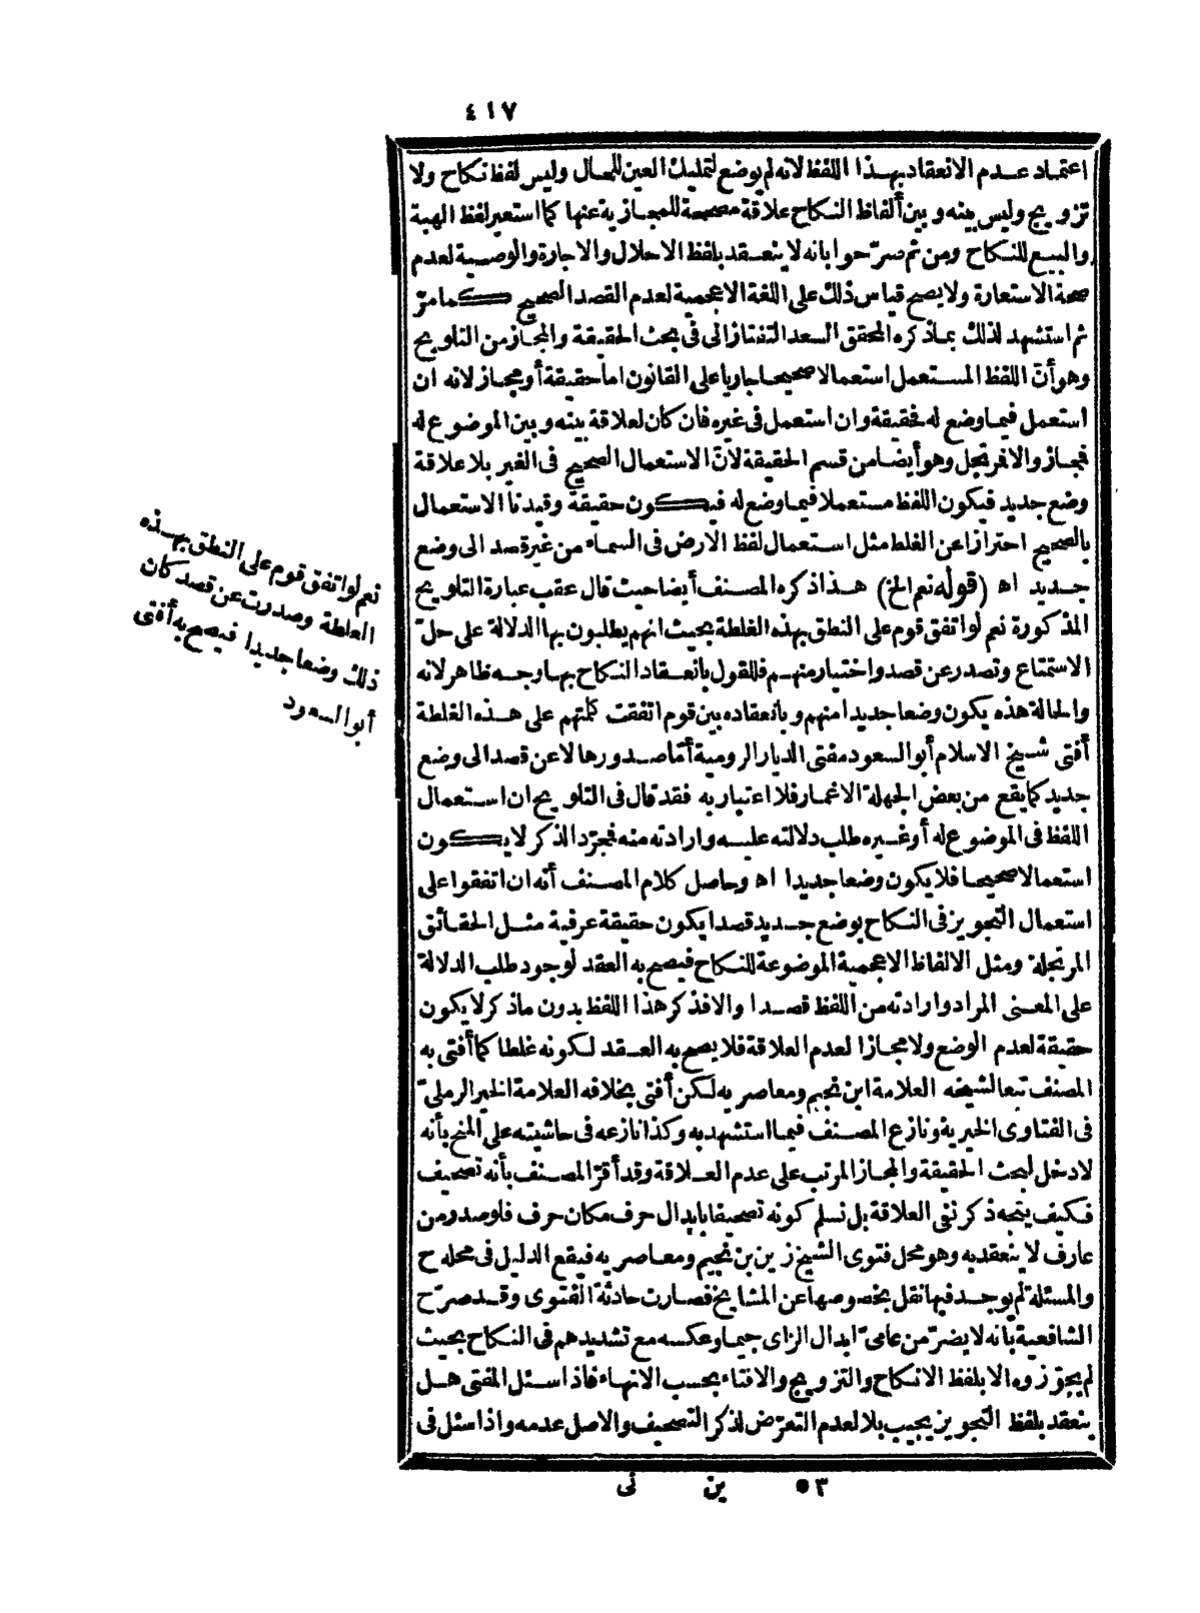 ٤١٧
اعتماد عدم الانعقاد بهذا اللفظ لانه لم يوضع لتمليك العين للحال وليس لفظ نكاح ولا
تزويج وليس بينه وبين ألفاظ النكاح علاقة مصححة للمجازية عنها كما استعير لفظ الهبة
والبيع للنكاح ومن ثم صرّحوا بانه لا ينعقد بلفظ الاحلال والاجارة والوصية لعدم
صحة الاستعارة ولا يصح قياس ذلك على اللغة الاعجمية لعدم القصد الصحيح كما مرّ
ثم استشهد لذلك بما ذكره المحقق السعد التفتازانى فى بحث الحقيقة والمجاز من التلويح
وهو أنّ اللفظ المستعمل استعمالا صحيحا جاريا على القانون اما حقيقة أو مجاز لانه ان
استعمل فيما وضع له فحقيقة وان استعمل فى غيره فان كان لعلاقة بينه وبين الموضوع له
فمجاز والا فمرتجل وهو أيضا من قسم الحقيقة لانّ الاستعمال الصحيح فى الغير بلا علاقة
وضع جديد فيكون اللفظ مستعملا فيما وضع له فيكون حقيقة وقيدنا الاستعمال
بالصحيح احترازا عن الغلط مثل استعمال لفظ الارض فى السماء من غير قصد الى وضع
جديد اه (قوله نعم الخ) هذا ذكره المصنف أيضا حيث قال عقب عبارة التلويح
المذكورة نعم لو اتفق قوم على النطق بهذه الغلطة بحيث انهم يطلبون بها الدلالة على حلّ
الاستمتاع وتصدر عن قصد واختيار منهم فللقول بانعقاد النكاح بها وجه ظاهر لانه
والحالة هذه يكون وضعا جديدا منهم وبانعقاده بين قوم اتفقت كلمتهم على هذه الغلطة
أفتى شيخ الاسلام أبو السعود مفتى الديار الرومية أمّا صدورها لا عن قصد الى وضع
جديد كما يقع من بعض الجهلة الاغمار فلا اعتبار به فقد قال فى التلويح ان استعمال
اللفظ فى الموضوع له أو غيره طلب دلالته عليه وارادته منه فمجرّد الذكر لا يكون
استعمالا صحيحا فلا يكون وضعا جديدا اه وحاصل كلام المصنف أنه ان اتفقوا على
استعمال التجويز فى النكاح بوضع جديد قصدا يكون حقيقة عرفية مثل الحقائق
المرتجلة ومثل الالفاظ الاعجمية الموضوعة للنكاح فيصح به العقد لوجود طلب الدلالة
على المعنى المراد وارادته من اللفظ قصدا والا فذكر هذا اللفظ بدون ما ذكر لا يكون
حقيقة لعدم الوضع ولا مجازا لعدم العلاقة فلا يصح به العقد لكونه غلطا كما أفتى به
المصنف تبعا لشيخه العلامة ابن نجيم ومعاصريه لكن أفتى بخلافه العلامة الخير الرملىّ
فى الفتاوى الخيرية ونازع المصنف فيما استشهد به وكذا نازعه فى حاشيته على المنح بأنه
لا دخل لبحث الحقيقة والمجاز المرتب على عدم العلاقة وقد أقرّ المصنف بأنه تصحيف
فكيف يتجه ذكر نفى العلاقة بل نسلم كونه تصحيفا بابدال حرف مكان حرف فلو صدر من
عارف لا ينعقد به وهو محل فتوى الشيخ زين بن نجيم ومعاصريه فيقع الدليل فى محله ح
والمسئلة لم يوجد فيها نقل بخصوصها عن المشايخ فصارت حادثة الفتوى وقد صرّح
الشافعية بأنه لا يضرّ من عامىّ ابدال الزاى جيما وعكسه مع تشديدهم فى النكاح بحيث
لم يجوّزوه الا بلفظ الانكاح والتزويج والافتاء بحسب الانهاء فاذا سئل المفتى هل
ينعقد بلفظ التجويز يجيب بلا لعدم التعرّض لذكر التصحيف والاصل عدمه واذا سئل فى
نعم لو اتفق قوم على النطق بهذه
الغلطة وصدرت عن قصد كان
ذلك وضعا جديدا فيصح به أفتى
أبو السعود
٥٣ ين نى